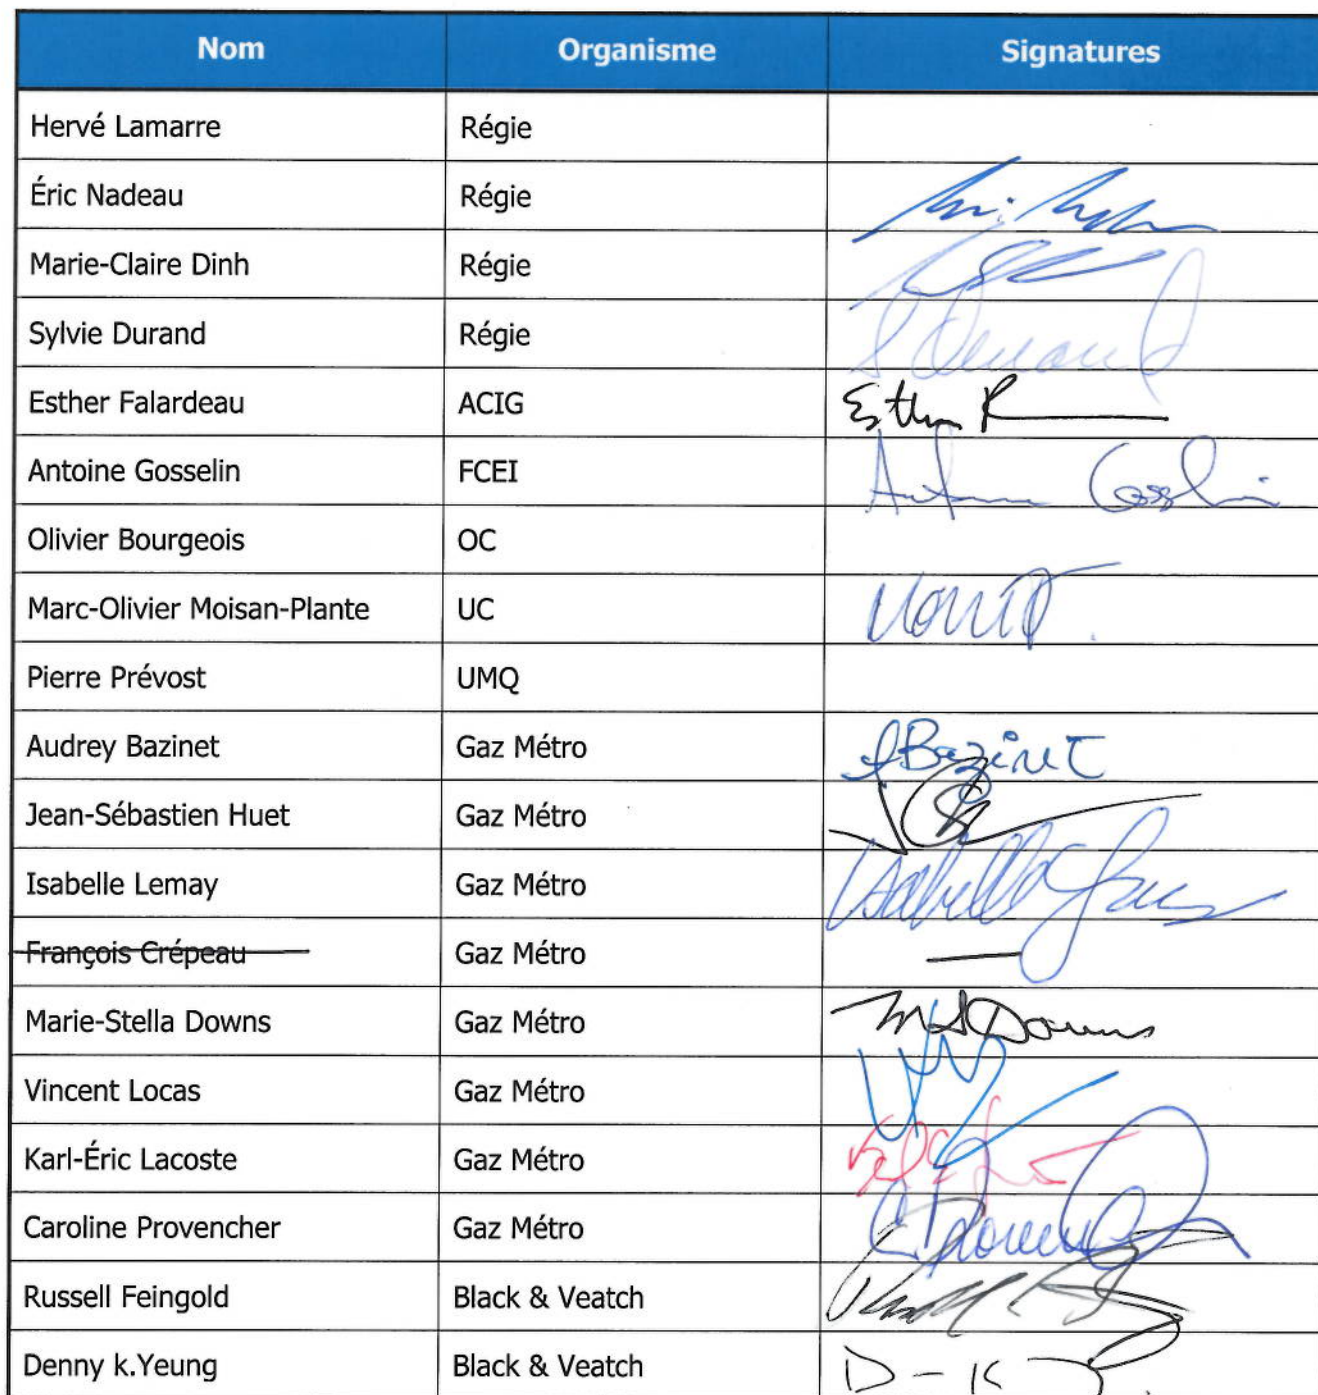 Nom Organisme Signatures
Hervé Lamarre Régie
Éric Nadeau Régie
Marie-Claire Dinh Régie
Sylvie Durand Régie S Durand
Esther Falardeau ACIG Esther
Antoine Gosselin FCEI Antoine Gosselin
Olivier Bourgeois OC
Marc-Olivier Moisan-Plante UC
Pierre Prévost UMQ
Audrey Bazinet Gaz Métro ABazinet
Jean-Sébastien Huet Gaz Métro
Isabelle Lemay Gaz Métro Isabelle
François Crépeau Gaz Métro —
Marie-Stella Downs Gaz Métro MSDowns
Vincent Locas Gaz Métro
Karl-Éric Lacoste Gaz Métro
Caroline Provencher Gaz Métro
Russell Feingold Black & Veatch
Denny k.Yeung Black & Veatch D-K